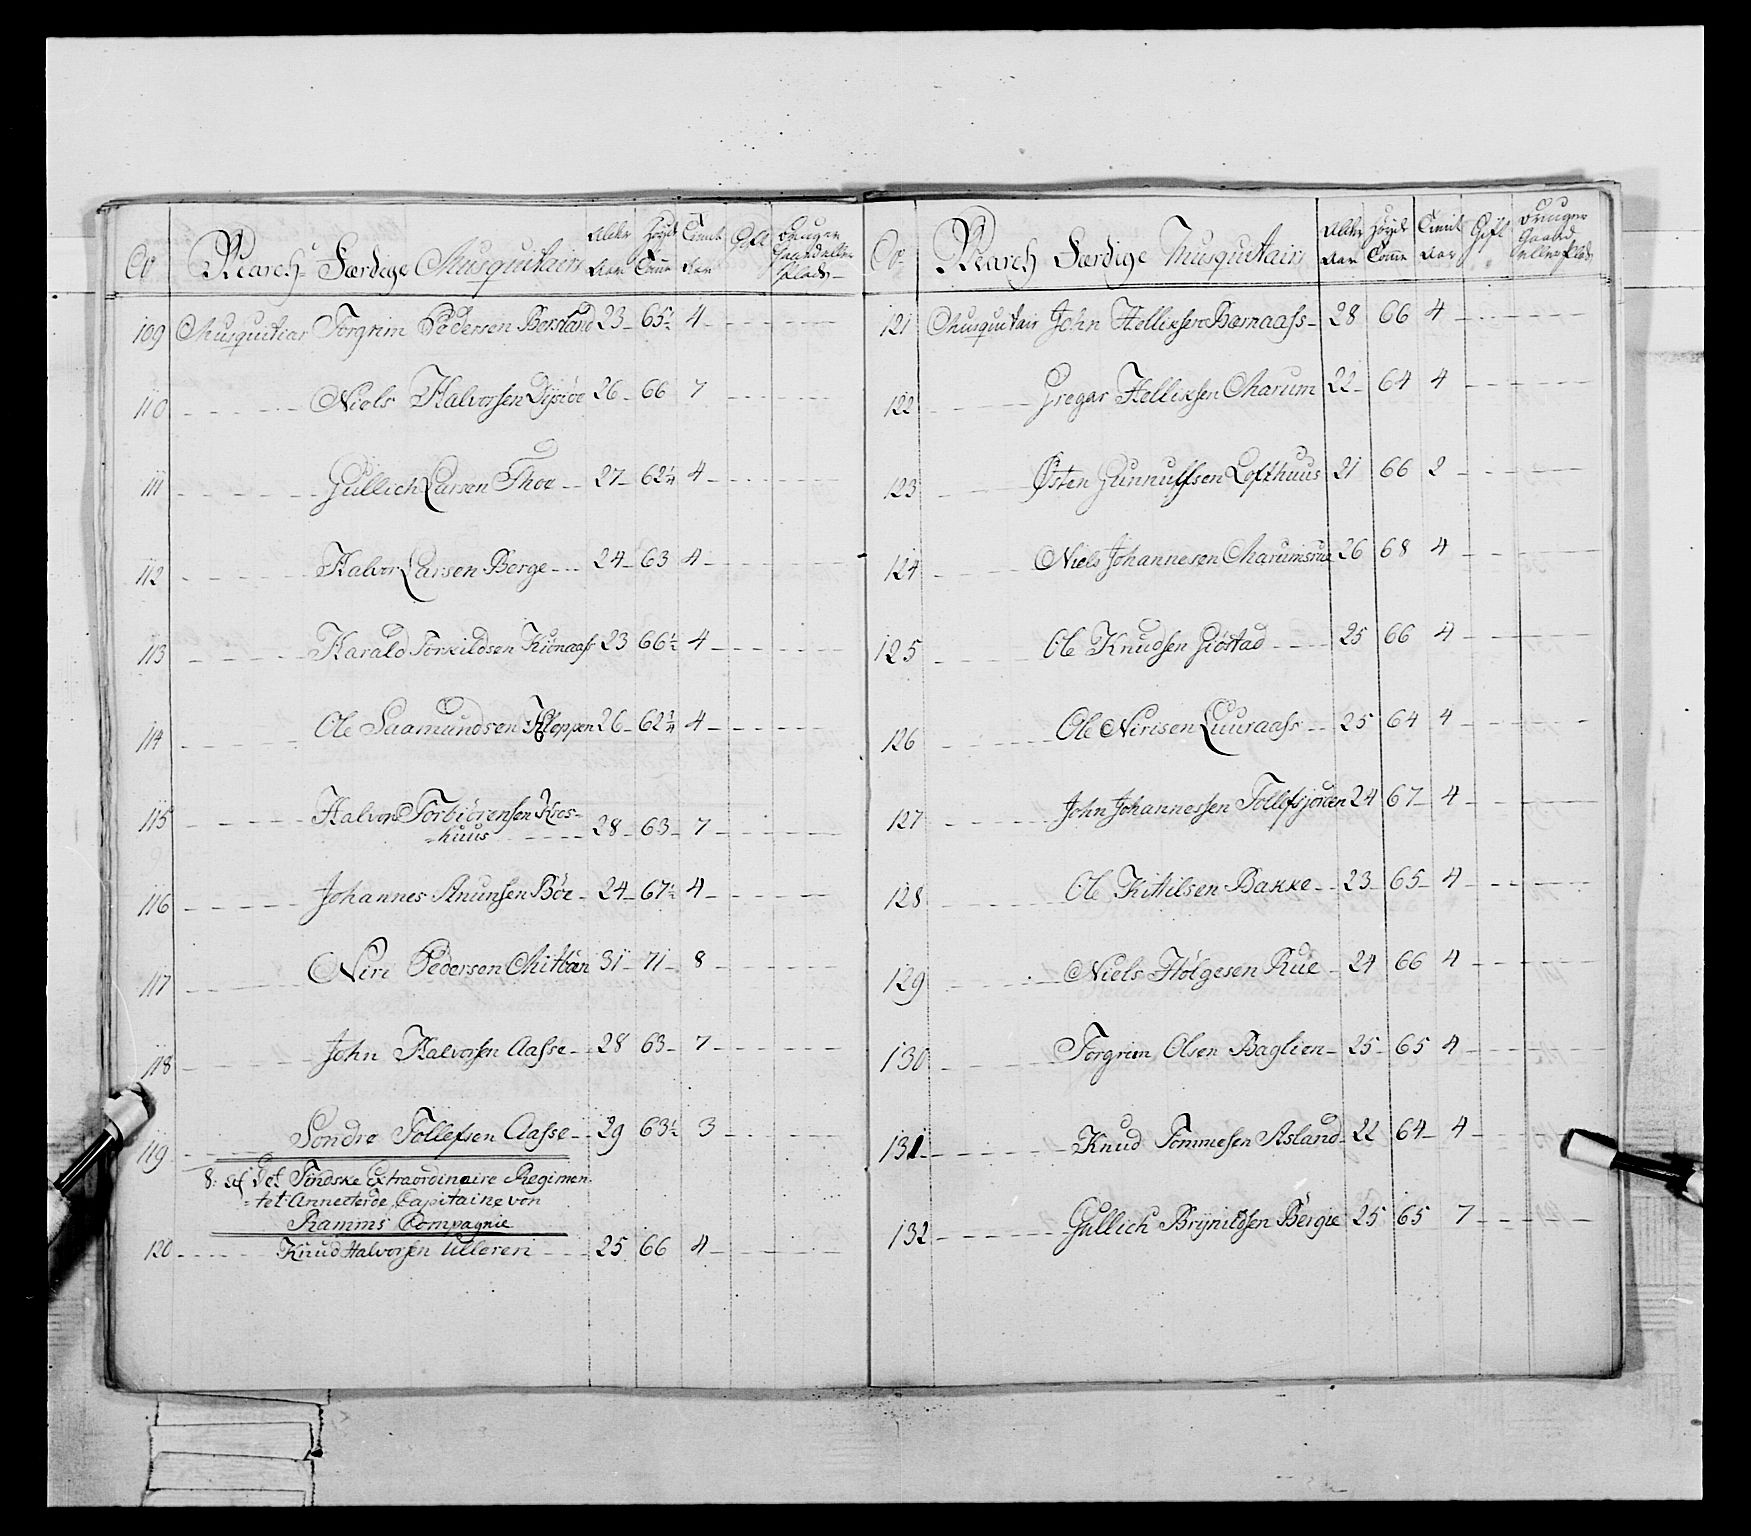 No March Færdige Musquitairi Alder Aar Høyde Tomē Tient Aar Gift Bruger Gaard eller Plads
109 Musquitiar Torgrim Pedersen Bersland 23 65½ 4
110 Niels Halvorsen Dysiøe 26 66 7
111 Gullich Larsen Thoe 27 62¼ 4
112 Halvor Larsen Berge 24 63 4
113 Harald Torkildsen Kiønaass 23 66½ 4
114 Ole Saamundsen Kloppen 26 62¾ 4
115 Halvor Torbiörensen Kros-
=huus 28 63 7
116 Johannes Knunsen Böe 24 67½ 4
117 Niri Pedersen Mitböen 31 71 8
118 John Halvorsen Aasse 28 63 7
119 Söndre Tollefsen Aasse 29 63½ 3
8: af det Tindske Extraordinaire Regimen
=tet Annecterde, Capitaine von
Ramms Compagnie
120 Knud Halvorsen Ulleren 25 66 4
No March Færdige Musquitairi Alder Aar Høyde Tomē Tient Aar Gift Bruger Gaard eller Plads
121 Musquitair John Helliksen Bærnaass 28 66 4
122 Gregar Helliksen Marum 22 64 4
123 Østen Gunnulfsen Lofthuus 21 66 2
124 Niels Johannesen Marumsrue 26 68 4
125 Ole Knudsen Giøstad 25 66 4
126 Ole Nirisen Luuraass 25 64 4
127 John Johannessen Tollefsjorden 24 67 4
128 Ole Kittilsen Bakke 23 65 4
129 Niels Hølgesen Rue 24 66 4
130 Torgrim Olsen Baglien 25 65 4
131 Knud Tommesen Asland 22 64 4
132 Gullich Brynildsen Bergie 25 65 7